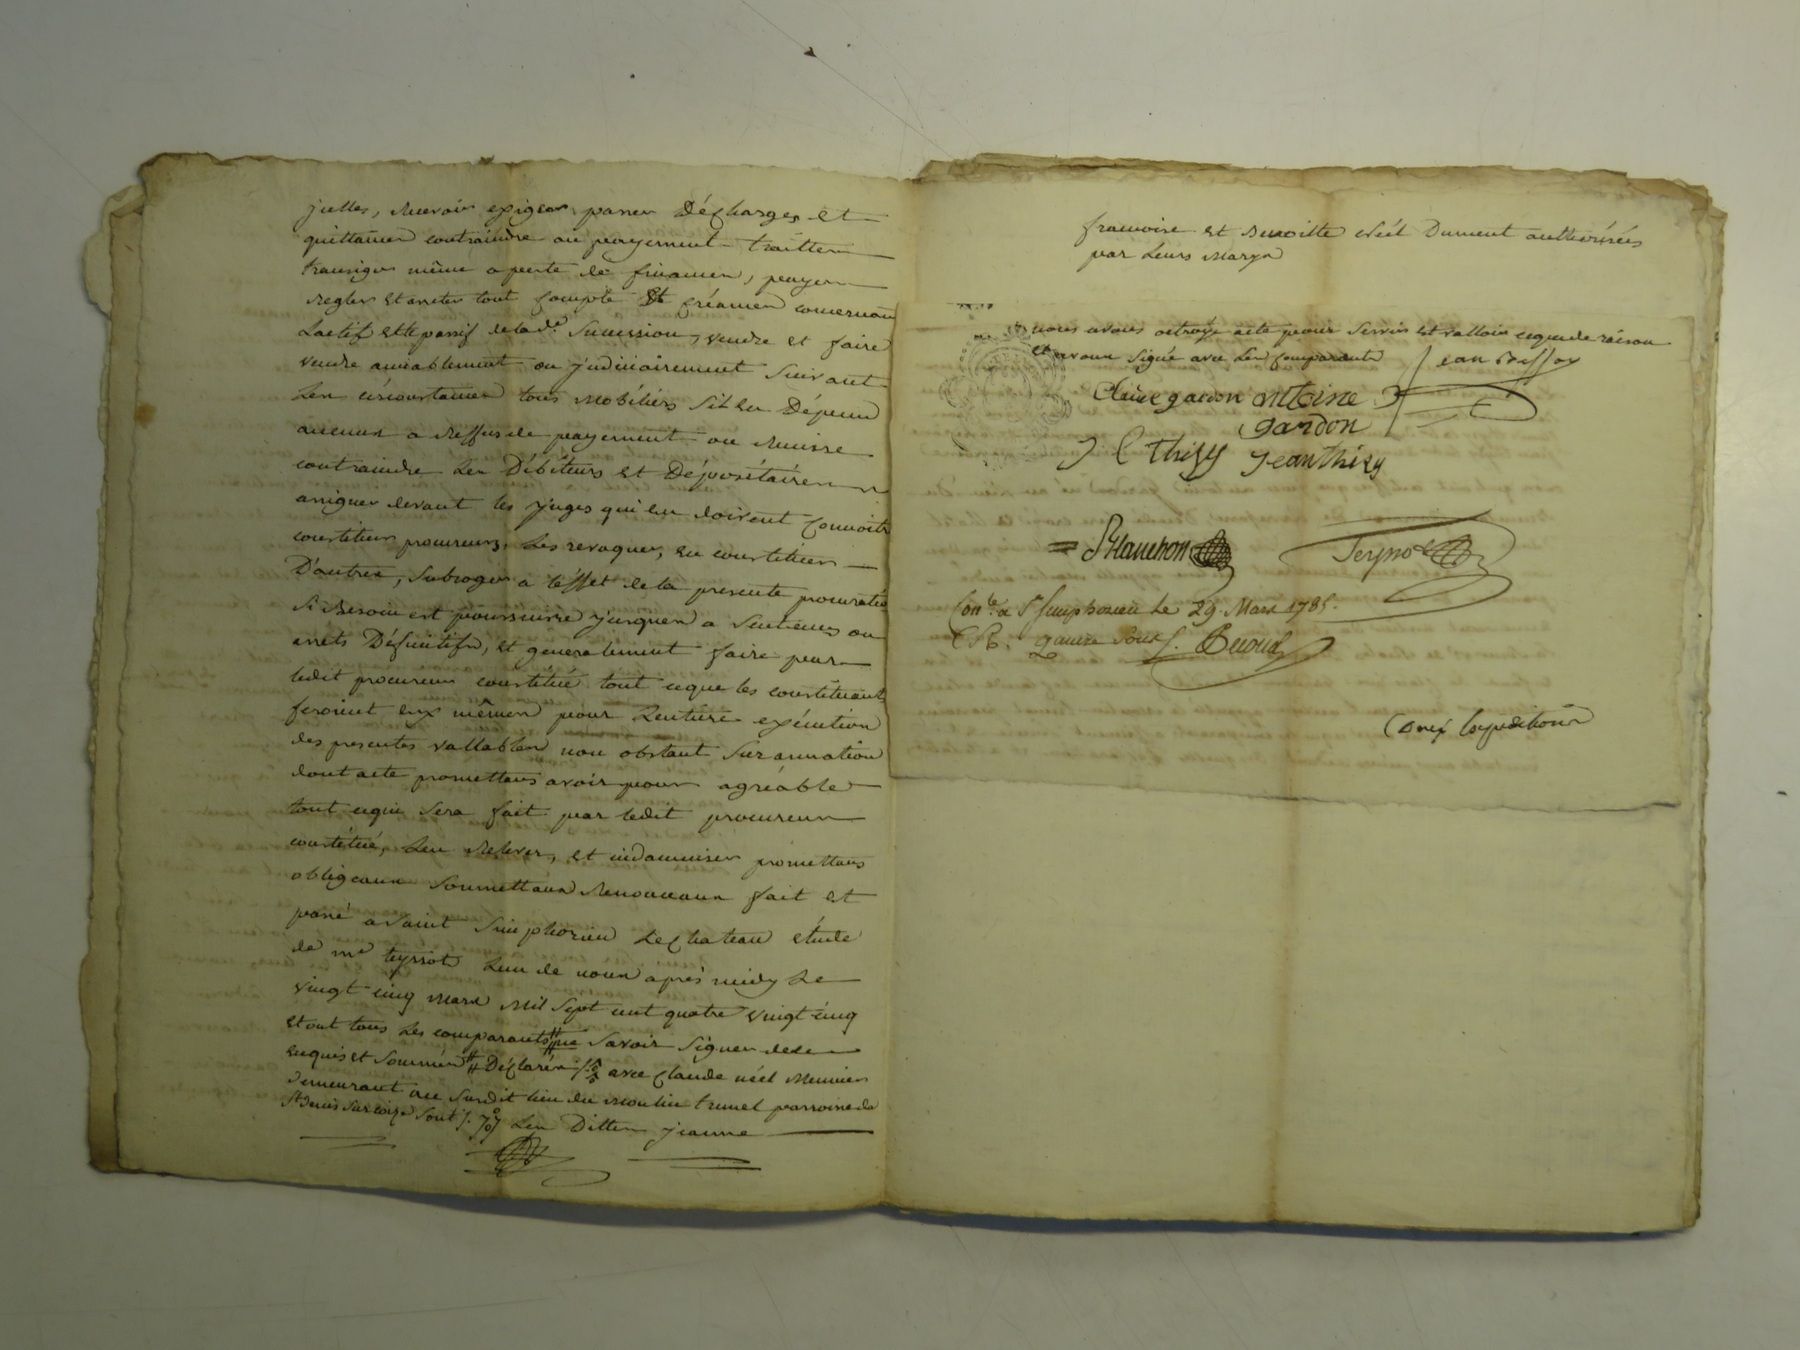 juttes, recevoir exiger passer Décharges et
quittances contraindre au payement traitter
transiger même a perte de finances, payer
regler et arreter tout compte et créances concernant
Lactif et le passif de lad.e Succession, vendre et faire
vendre amiablement ou judiciairement suivant
Les circonstances tous mobiliers s'il en Dépend
aucuns a reffus de payement ou remise
contraindre Les Débiteurs et Dépositaires
assigner devant les juges qui en doivent connoitre
constituer procureurs, Les revoquer, en constituer
D'autres, subroger a l'effet de la presente procuration
si Besoin est poursuivre jusques a Sentences ou
arrets Définitifs, et generalement faire par
ledit procureur constitué tout ceque les constituants
feroient eux mêmes pour Lentière exécution
des presentes vallables non obstant Surannation
dont acte promettans avoir pour agréable
tout cequi sera fait par ledit procureur
constitué, Len relever, et indamniser promettans
obligeans Soumettans Renonceans fait et
passé a Saint Simphorien Le chateau étude
de me teyssot Lun de nous après midy Le
vingt cinq mars mil sept cent quatre vingt cinq
et ont tous les comparants # savoir signer de ce
enquis et sommés # Déclarés avec claude néel meunier
demeurant au susdit lieu du moulin trunel parroisse de
St Denis sur coize sont Les Dittes jeanne
francoise et Benoitte néel Dument authorisées
par Leurs Marys
nous avons octroyé acte pour servir et valloir ceque de raison
et avons signé avec Les comparants jean Buffoy
Claude gardon antoine
gardon
J C Thisy jean Thisy
Blanchon Teyssot
Con.le a St simphorien le 29 Mars 1785.
R. quinze sous f. Beroud
Deux Expeditions